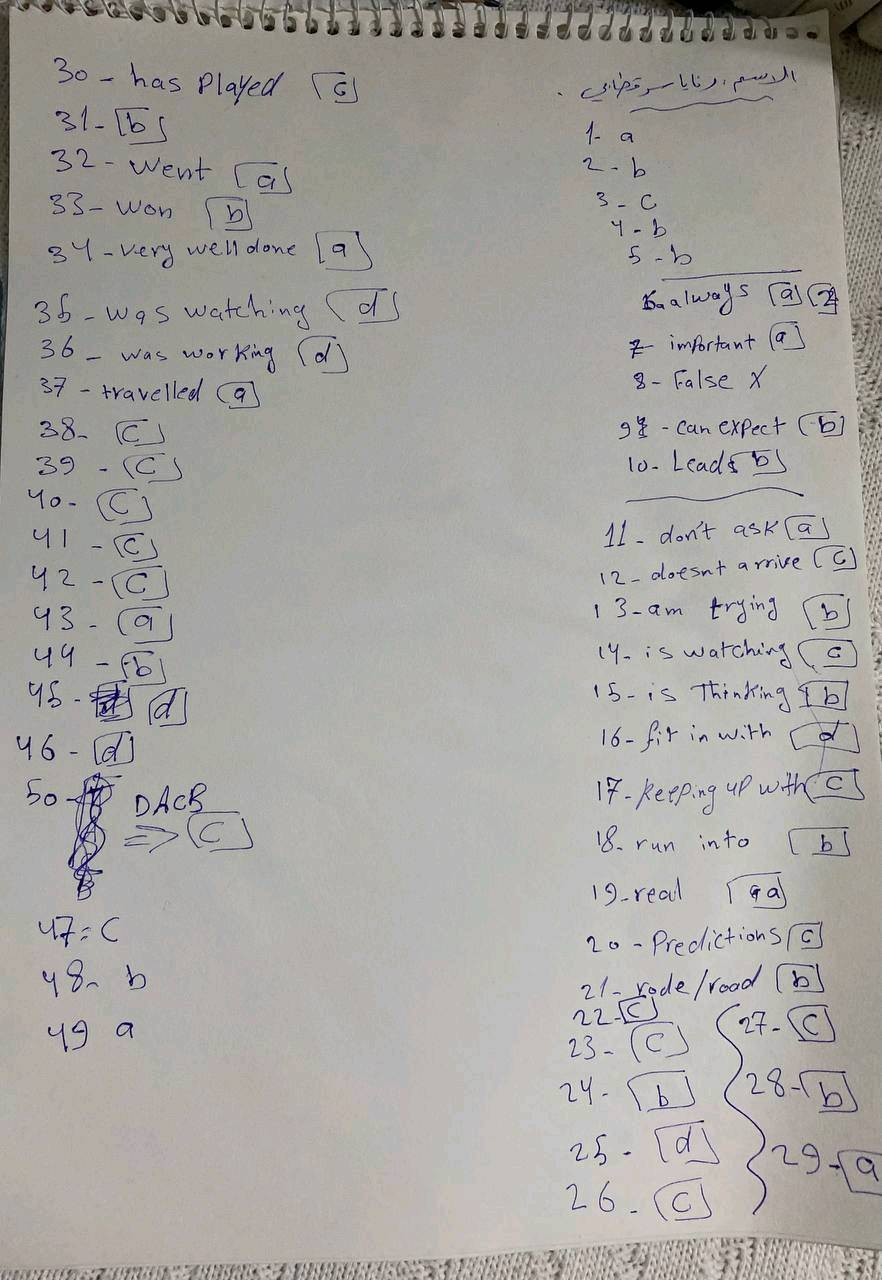 الاسم: رنا ياسر قضابي.
1- a
2- b
3- c
4- b
5- b
6- always a
7- important a
8- False X
9- can expect b
10- Leads b
11- don't ask a
12- doesnt arrive c
13- am trying b
14- is watching c
15- is Thinking b
16- fit in with d
17- keeping up with c
18- run into b
19- real a
20- Predictions c
21- rode/road b
22- c
23- c
24- b
25- d
26- c
27- c
28- b
29- a
30- has Played c
31- b
32- went a
33- won b
34- very well done a
35- was watching d
36- was working d
37- travelled a
38- c
39- c
40- c
41- c
42- c
43- a
44- b
45- d
46- d
50- DACB
=> c
47= c
48- b
49 a